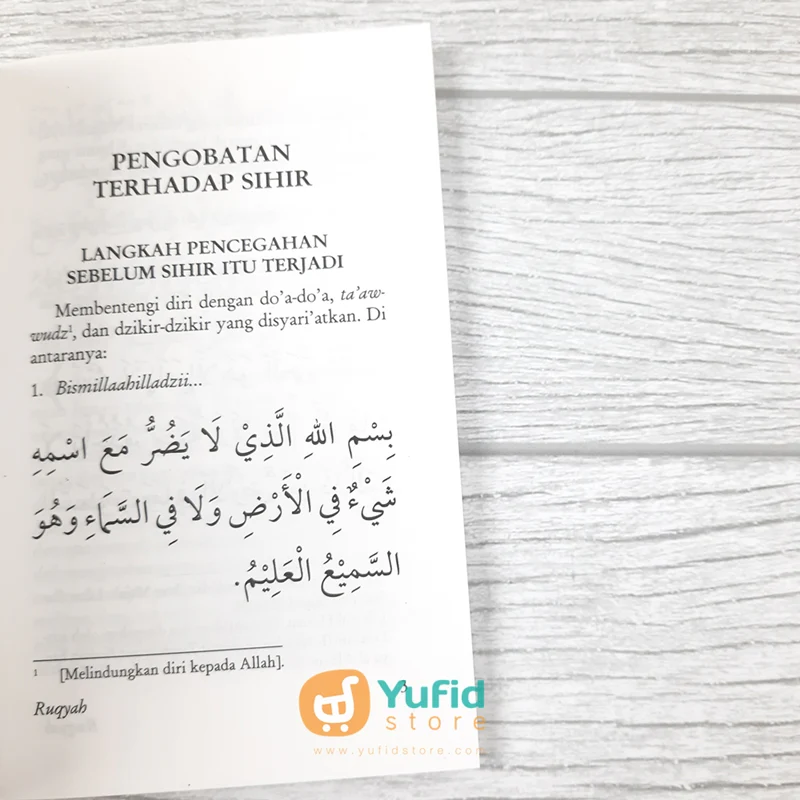 PENGOBATAN
TERHADAP SIHIR
LANGKAH PENCEGAHAN
SEBELUM SIHIR ITU TERJADI
Membentengi diri dengan do'a-do'a, ta'aw-
wudz¹, dan dzikir-dzikir yang disyari'atkan. Di
antaranya:
1. Bismillaahilladzii...
بِسْمِ اللهِ الَّذِيْ لَا يَضُرُّ مَعَ اسْمِهِ
شَيْءٌ فِي الْأَرْضِ وَلَا فِي السَّمَاءِ وَهُوَ
السَّمِيْعُ الْعَلِيْمُ.
¹ [Melindungkan diri kepada Allah].
Ruqyah 3
Yufid
store
www.yufidstore.com